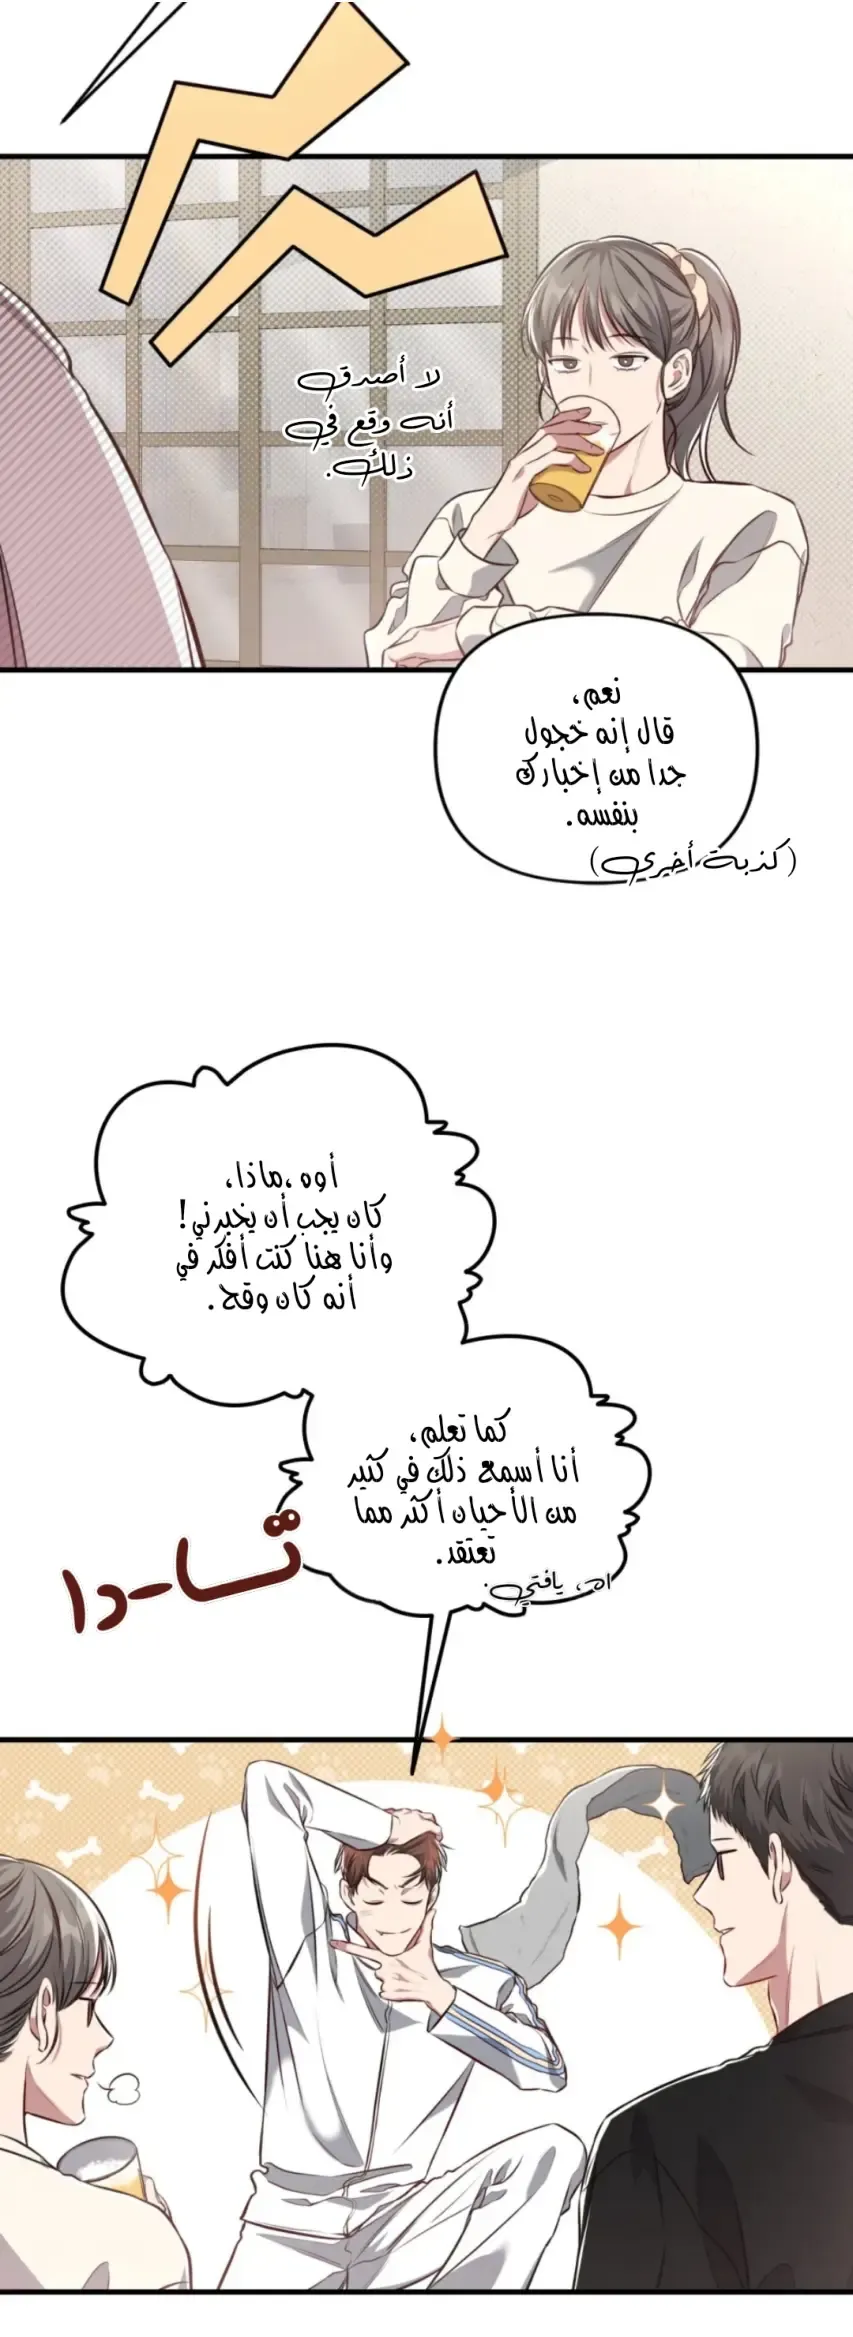 لا أصدق
أنه وقع في
ذلك.
نعم،
قال إنه خجول
جدا من إخبارك
بنفسه.
(كذبة أخرى)
أوه ،ماذا،
كان يجب أن يخبرني!
وأنا هنا كنت أفكر في
أنه كان وقح.
كما تعلم،
أنا أسمع ذلك في كثير
من الأحيان أكثر مما
تعتقد.
اه، يافتى.
تا-دا